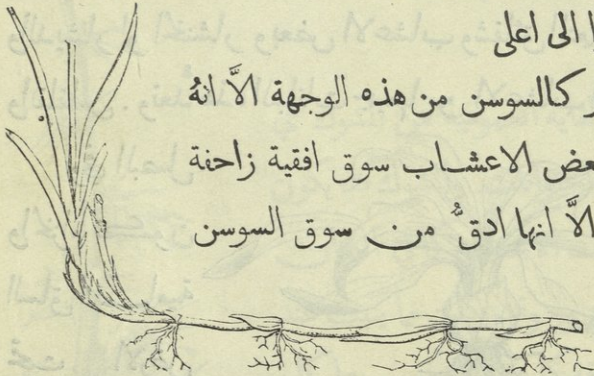 ا الى اعلى
ر كالسوسن من هذه الوجهة الَّا انهُ
عض الاعشاب سوق افقية زاحفة
الَّا انها ادقُّ من سوق السوسن